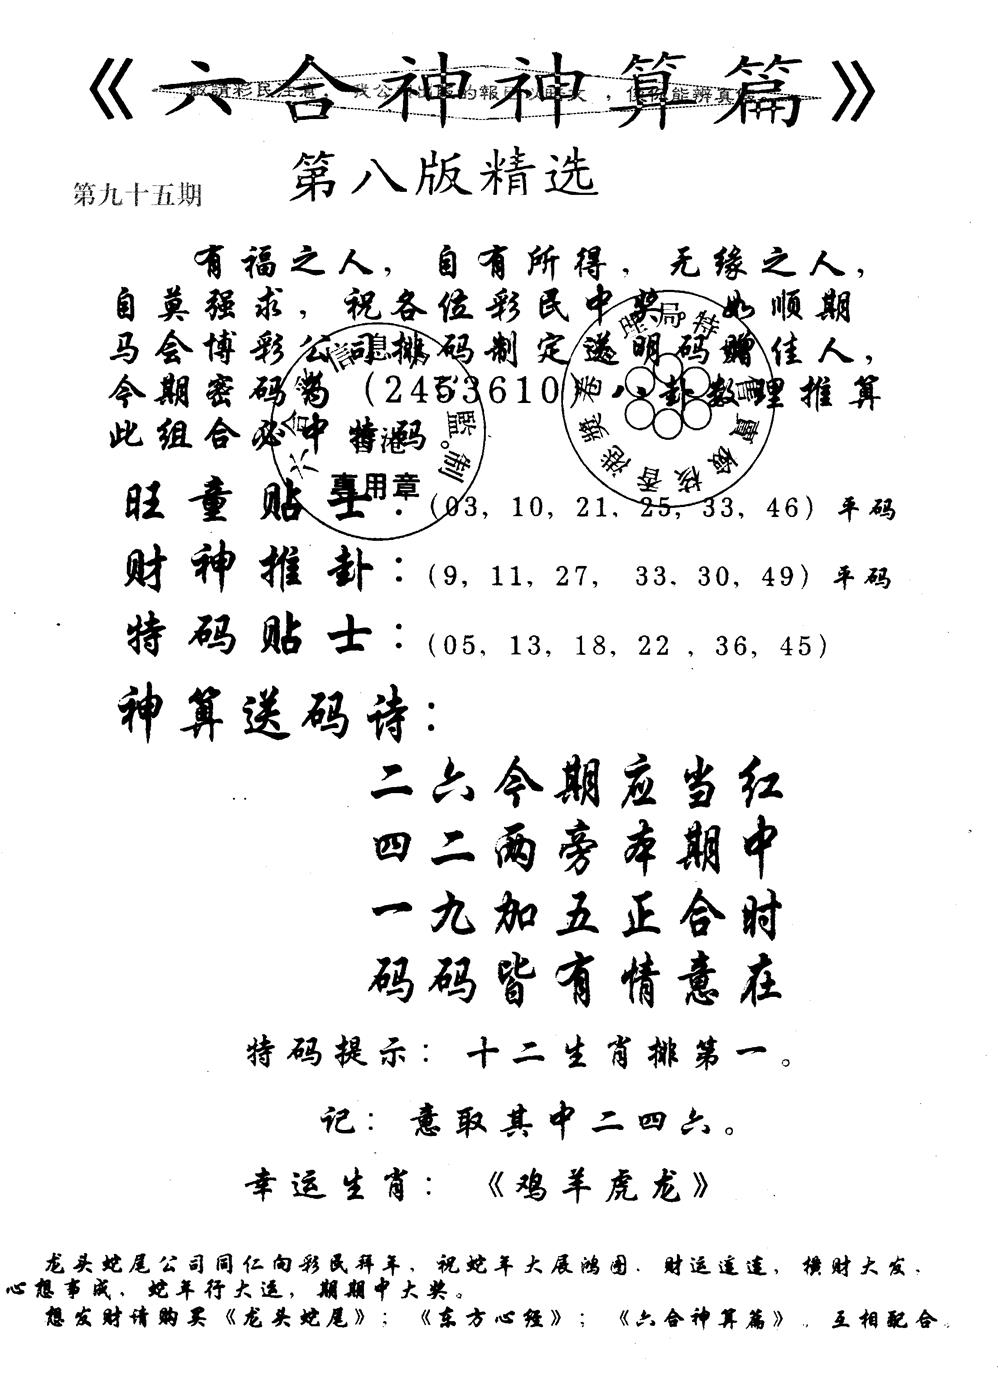 《六合神神算篇》
第八版精选
第九十五期
有福之人，自有所得，无缘之人，
自莫强求，祝各位彩民中奖。如顺期
马会博彩公司排码制定送明码赠佳人，
今期密码为（2453610）八卦数理推算
此组合必中特码
旺童贴士：(03, 10, 21, 25, 33, 46) 平码
财神推卦：(9, 11, 27, 33, 30, 49) 平码
特码贴士：(05, 13, 18, 22 , 36, 45)
神算送码诗：
二六今期应当红
四二两旁本期中
一九加五正合时
码码皆有情意在
特码提示：十二生肖排第一。
记：意取其中二四六。
幸运生肖：《鸡羊虎龙》
龙头蛇尾公司同仁向彩民拜年，祝蛇年大展鸿图，财运连连，横财大发，
心想事成，蛇年行大运，期期中大奖。
想发财请购买《龙头蛇尾》；《东方心经》；《六合神算篇》，互相配合。
香港
專用章